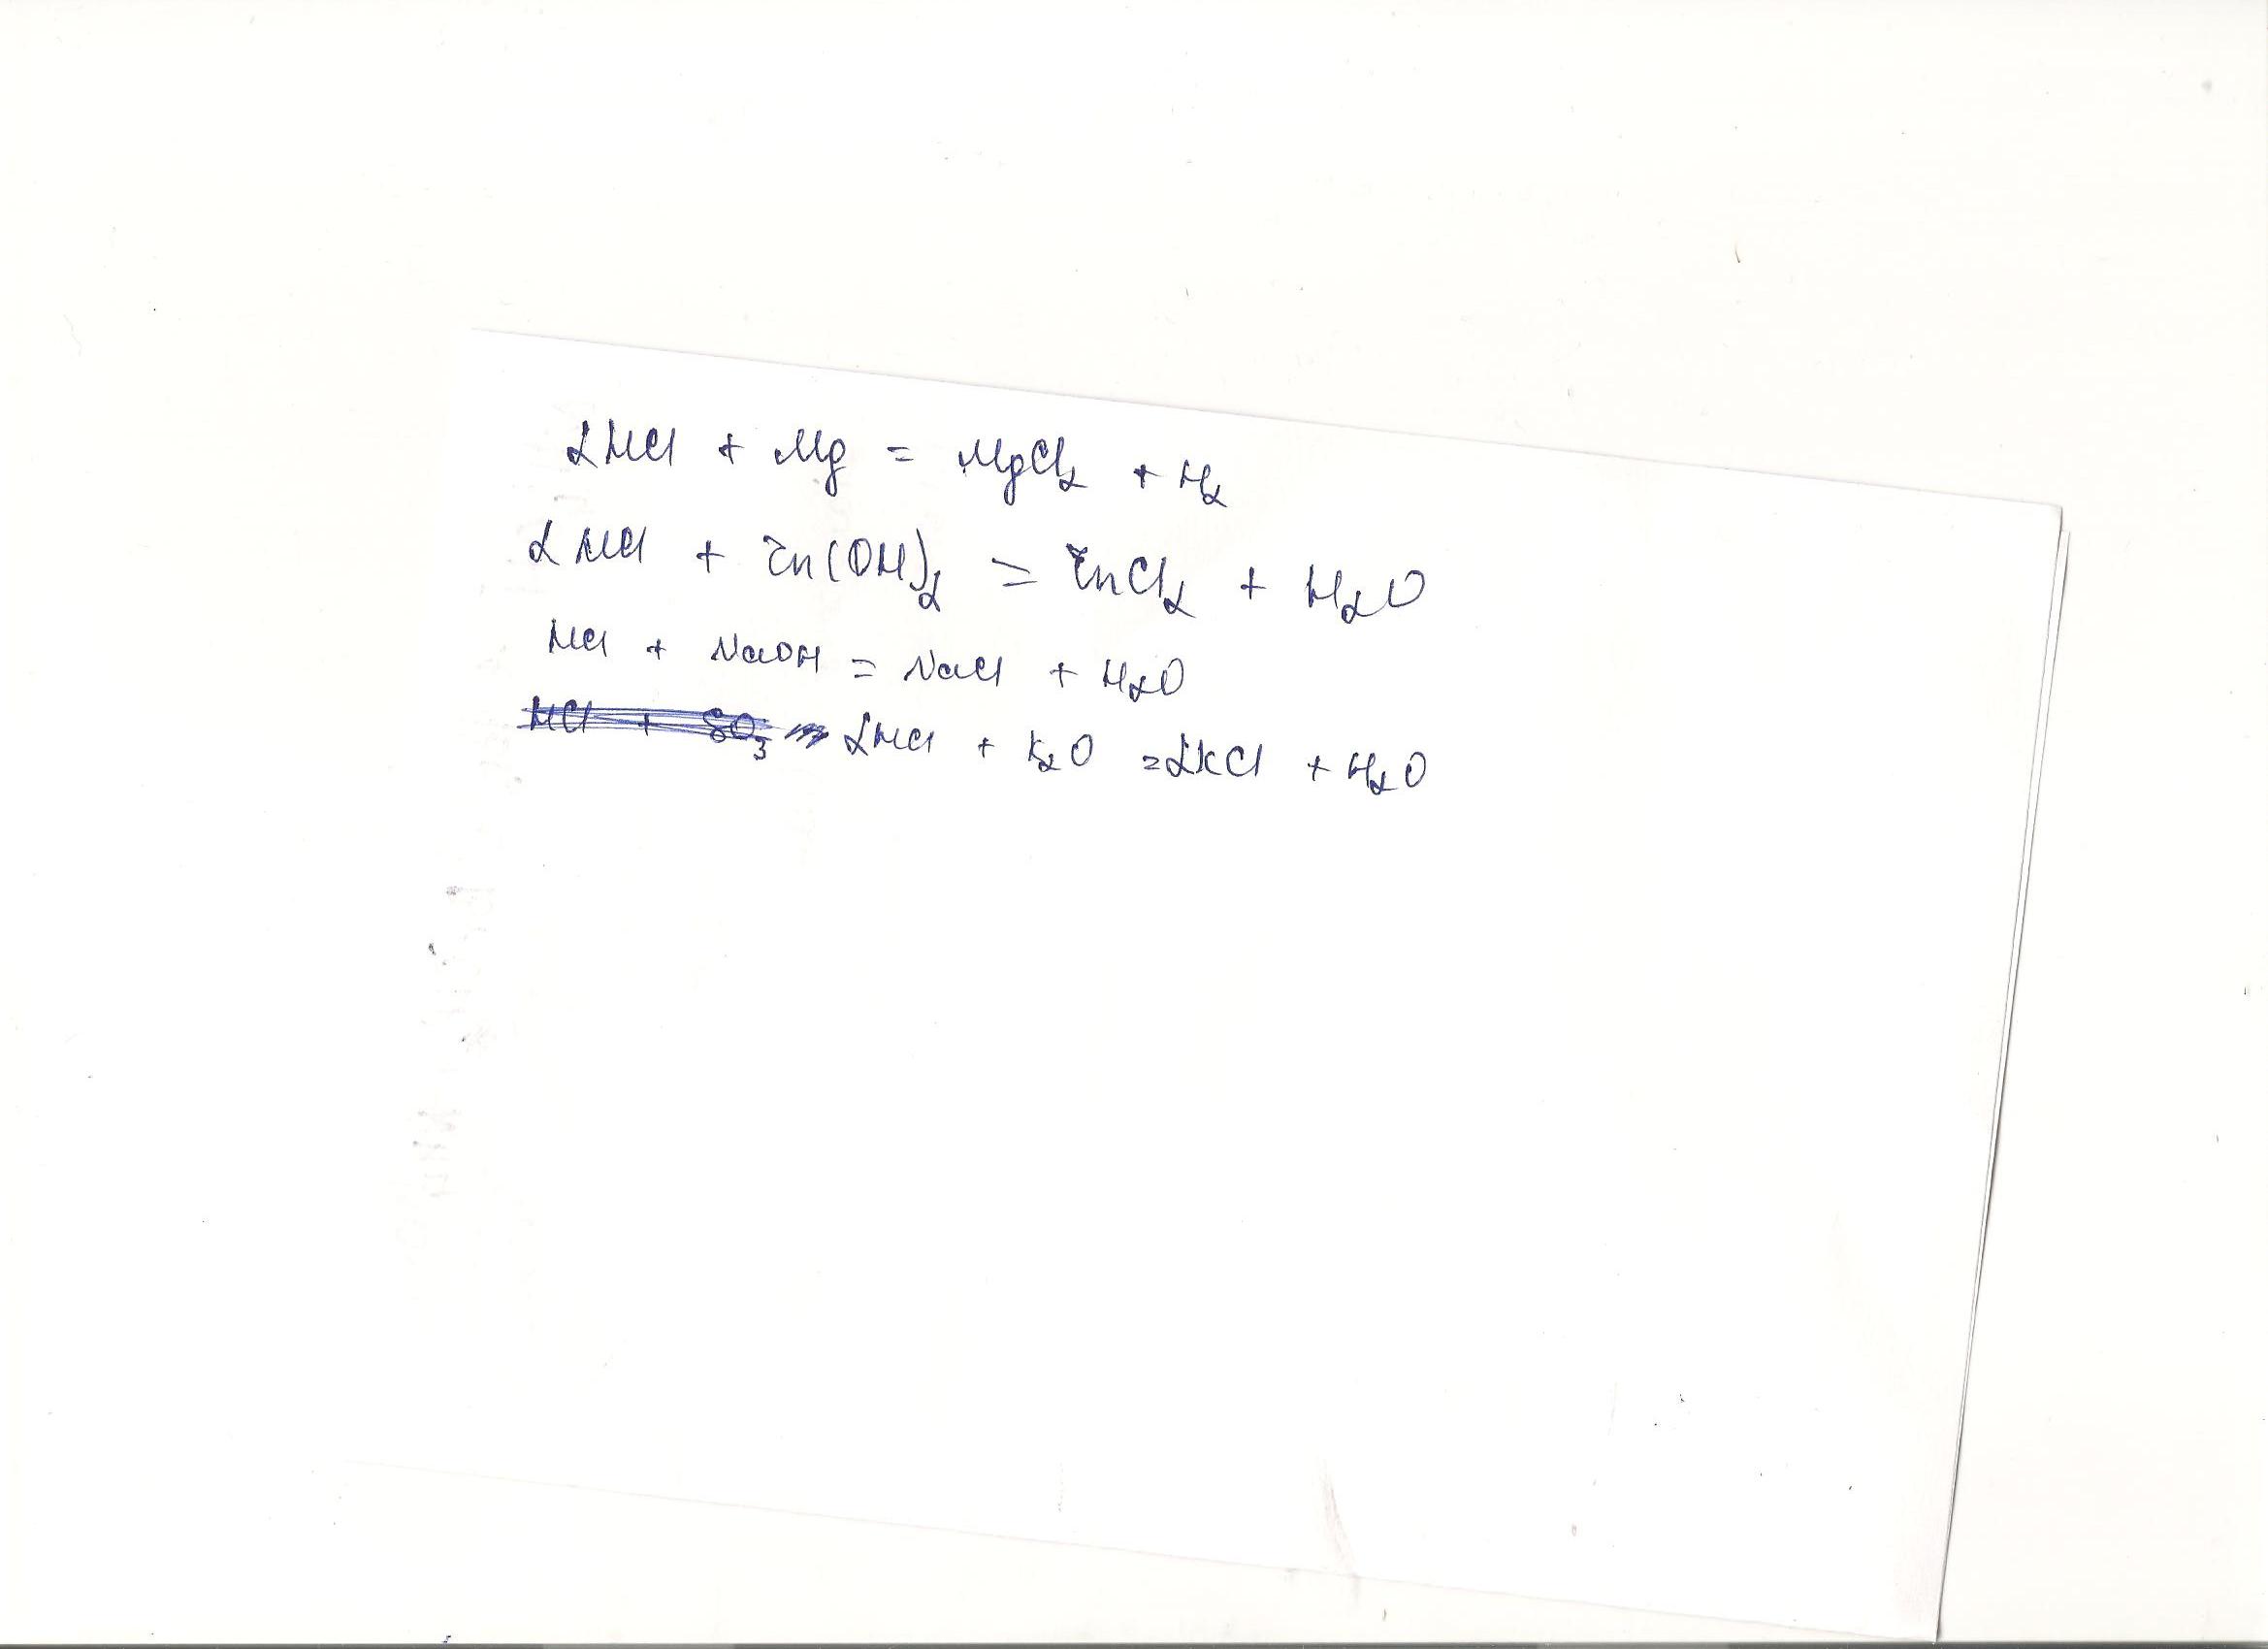 2HCl + Mg = MgCl2 + H2
2HCl + Zn(OH)2 = ZnCl2 + H2O
HCl + NaOH = NaCl + H2O
HCl + SO3 2HCl + K2O = 2KCl + H2O